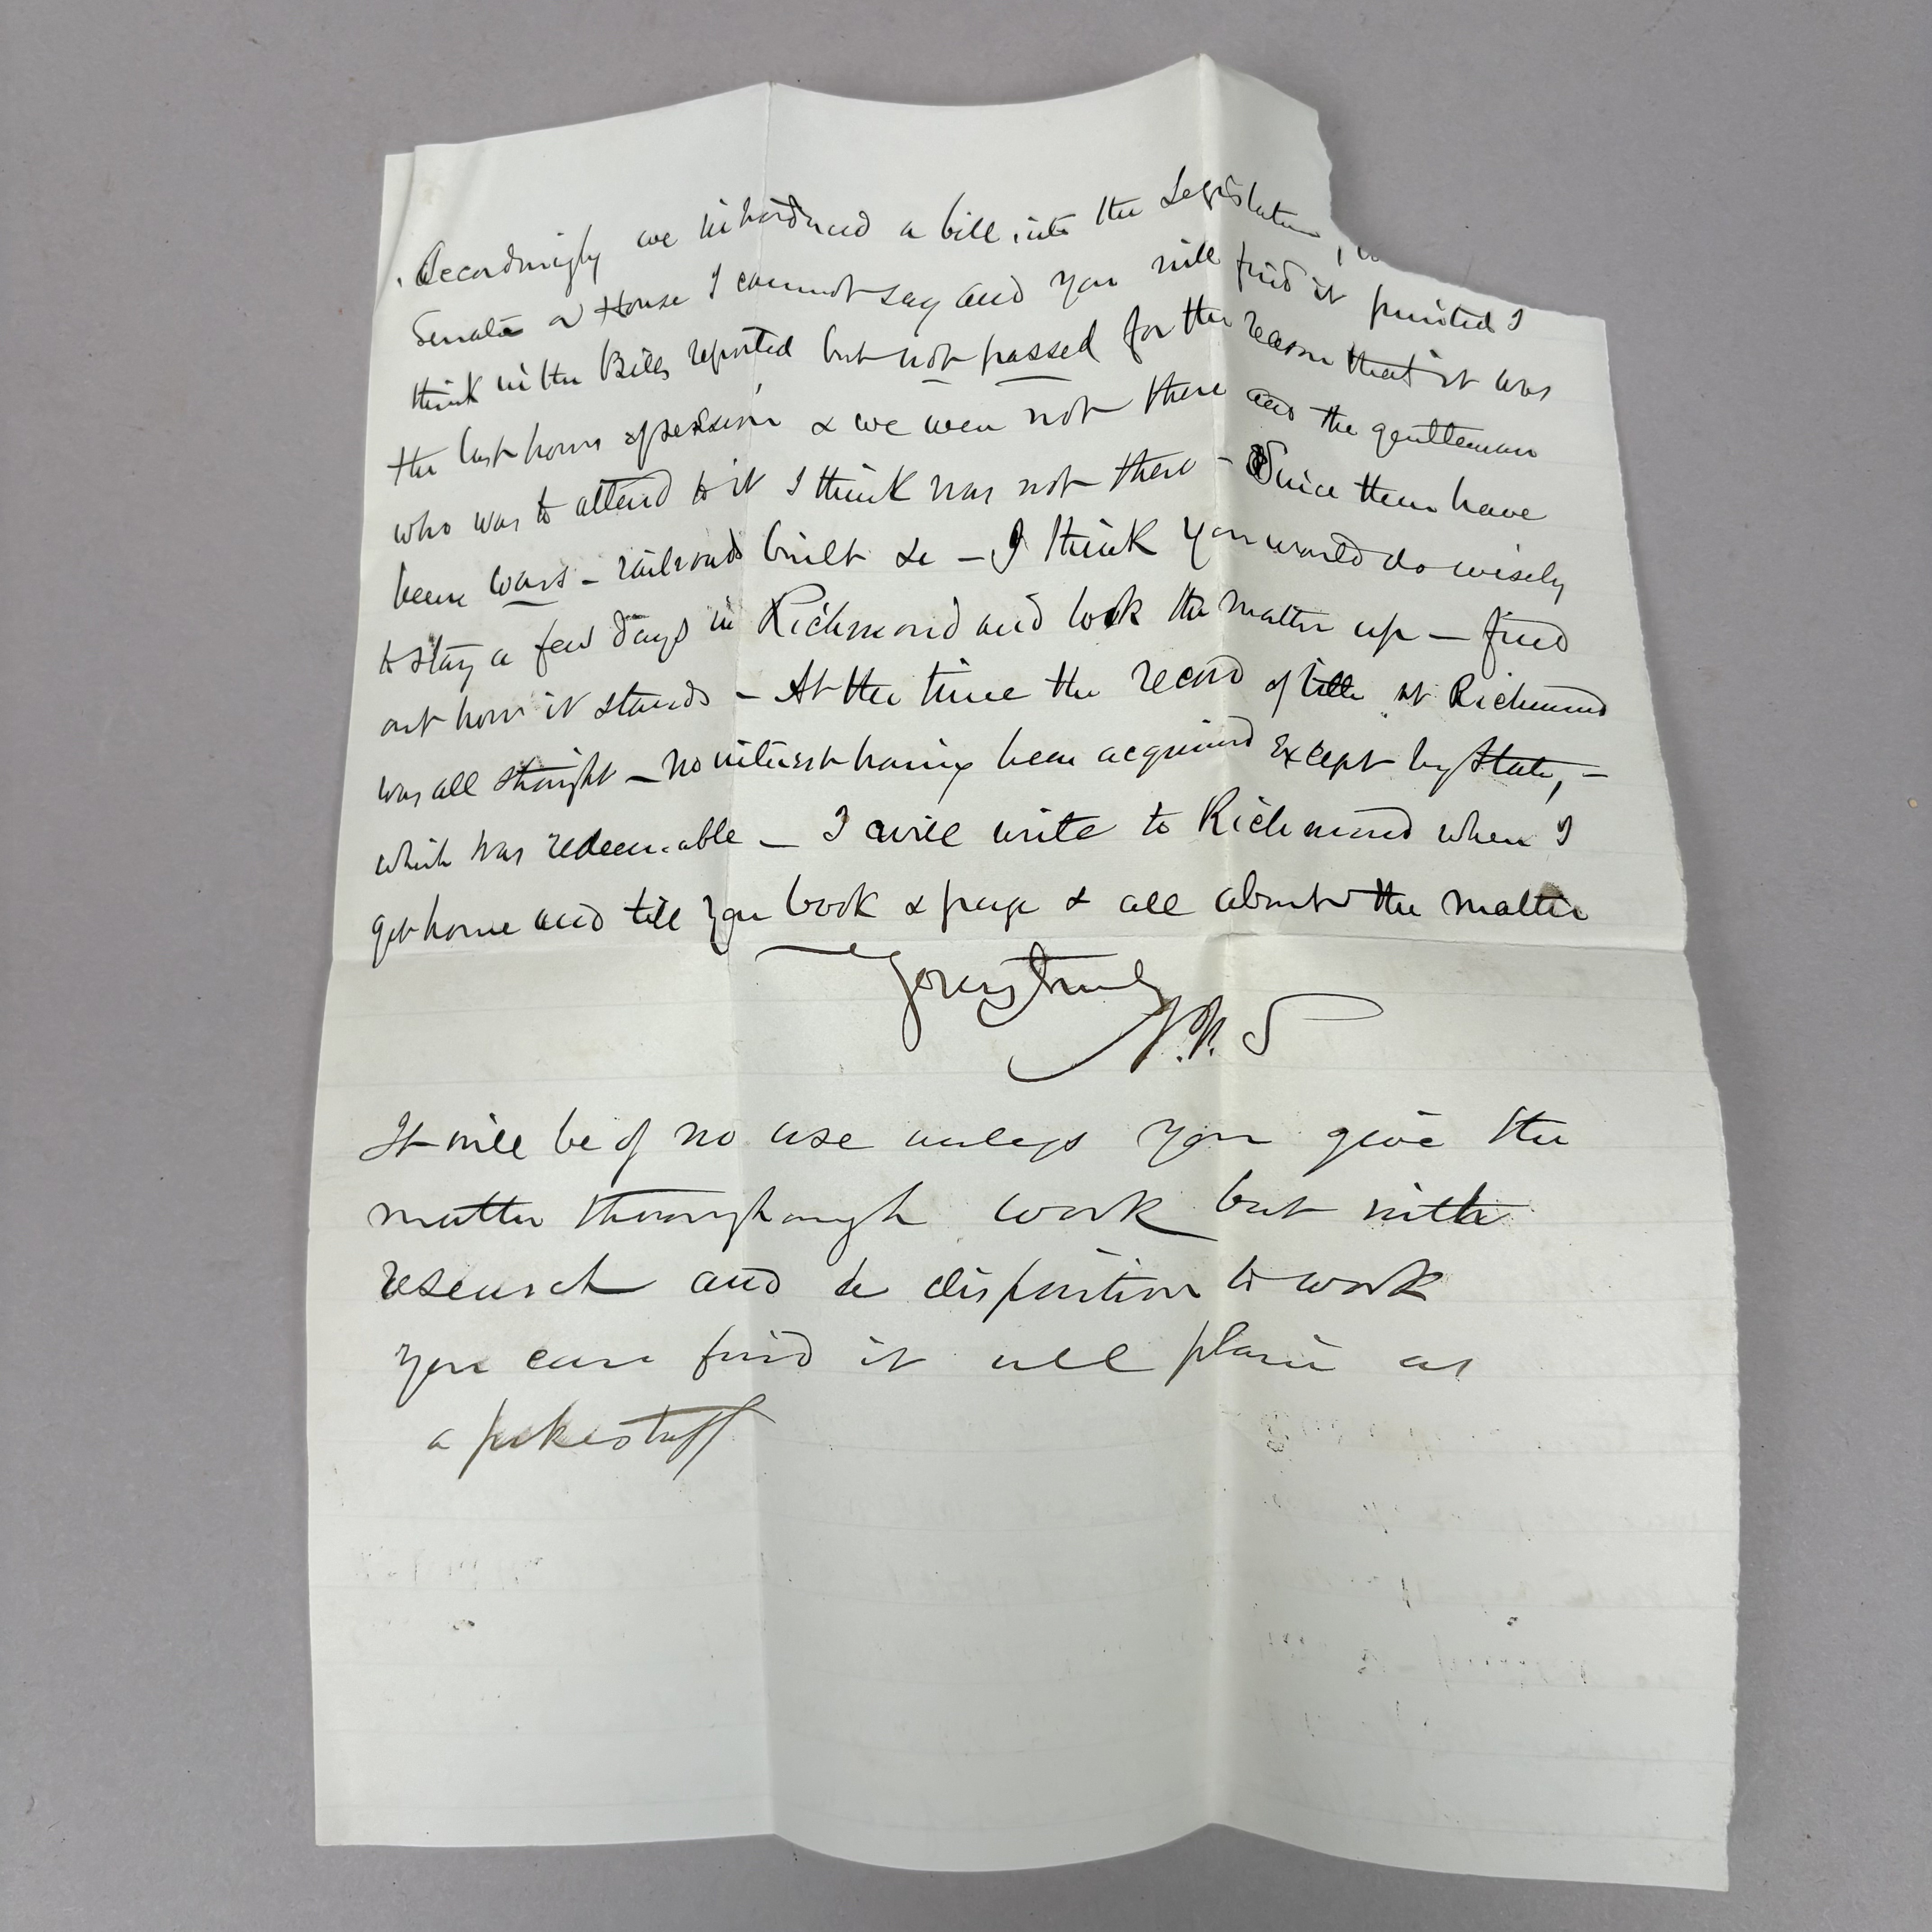 Accordingly we introduced a bill into the Legislature,
Senate or House I cannot say and you will find it printed I
think in the Bills reported but not passed for the reason that it was
the last hours of session & we were not there and the gentleman
who was to attend to it I think was not there - Since then have
been wars - railroads built &c - I think you would do wisely
to stay a few days in Richmond and look the matter up - find
out how it stands - At the time the record of title at Richmond
was all straight - no interest having been acquired except by State, -
which was redeemable - I will write to Richmond when I
get home and tell you book & page & all about the matter
Yours truly
It will be of no use unless you give the
matter thoroughough work but with
research and a disposition to work
you can find it all plain as
a pikestaff